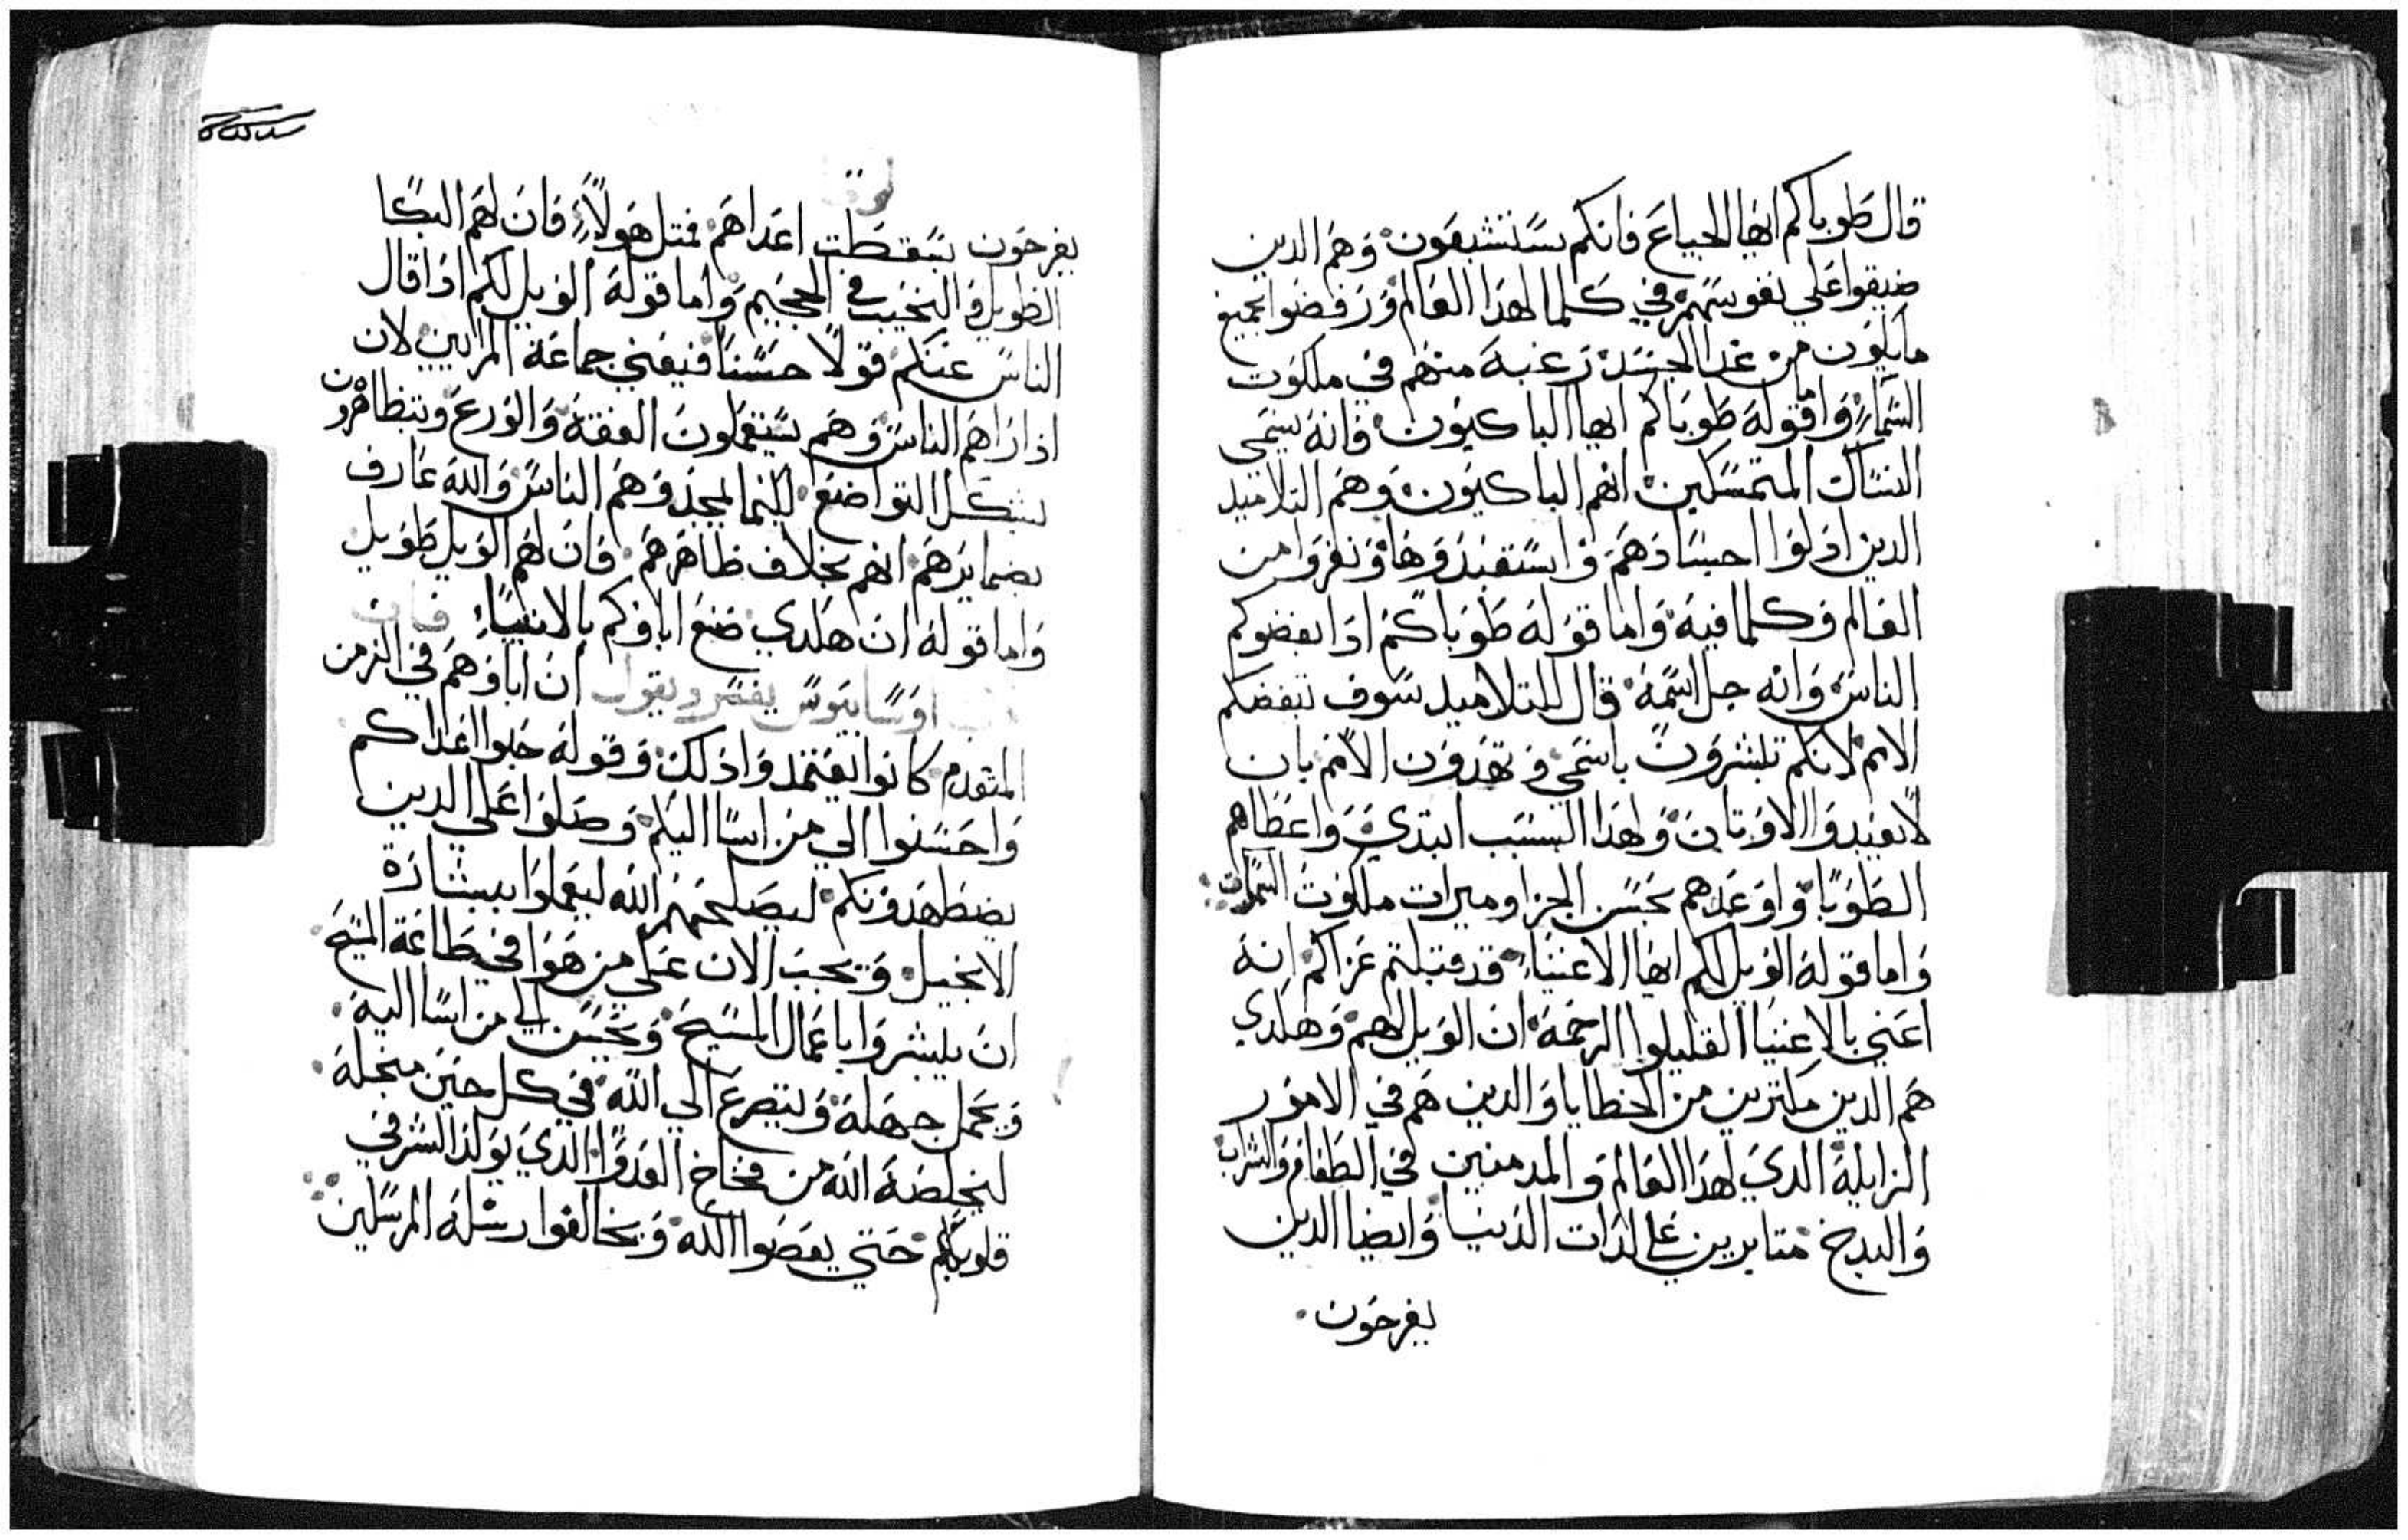 قال طوباكم ايها الجياع فانكم ستشبعون وهم الدين
ضيقوا علي نفوسهم في كلما لهذا العالم ورفضوا بجميع
ما يكون من غدا الجسد رغبة منهم في ملكوت
السماء واما قوله طوباكم ايها الباكيون فانه يسمى
النساك المتمسكين انهم الباكيون وهم التلاميد
الدين ادلوا اجسادهم واستعبدوها ونفروا من
العالم وكلما فيه واما قوله طوباكم ادا بغضوكم
الناس وانه جل اسمه قال للتلاميد سوف تبغضكم
الامم لانكم تبشرون باسمي وتهدون الامم بان
لا يعبدوا الاوتان ولهدا السبب ابتدي واعطاهم
الطوبا واوعدهم بحسن الجزا وميرات ملكوت السموات
واما قوله الويل لكم ايها الاغنياء قد قبلتم عزاكم انه
اعني بالاغنيا القليلوا الرحمة ان الويل لهم وهلدي
هم الدين مكترين من الخطايا والدين هم في الامور
الزايلة الدي لهدا العالم والمدمنين في الطعام والشراب
والبدخ متابرين على لدات الدنيا وايضا الدين
يفرحون
يفرحون بسقطت اعداهم فمتل هولاء فان لهم البكا
الطويل والنحيب في الجحيم واما قوله الويل لكم ادا قال
الناس عنكم قولا حسنا فيعني جماعة المرايين لان
ادا راهم الناس وهم يستعملون العفة والورع ويتظاهرون
بشكل التواضع لكيما يمجدوهم الناس والله عارف
بضمايرهم انهم بخلاف ظاهرهم فان لهم الويل طويل
واما قوله ان هلدي صنع اباوكم بالانبياء فان
اوسابيوس يفسر ويقول ان اباوهم في الزمن
المتقدم كانوا يعتمدوا دلك وقوله حبوا اعداكم
واحسنوا الي من اسا اليكم وصلوا علي الدين
يضطهدونكم ليصلحهم الله ليعملوا ببشارة
الانجيل ويجب الان على من هوا في طاعة المسيح
ان يبشروا باعمال المسيح ويحسن الى من اسا اليه
ويحمل جهله وليتضرع الي الله في كل حين منجله
ليخلصه الله من فخاخ العدوا الدي يولد الشر في
قلوبكم حتي يعصوا الله ويخالفوا رسله المرسلين